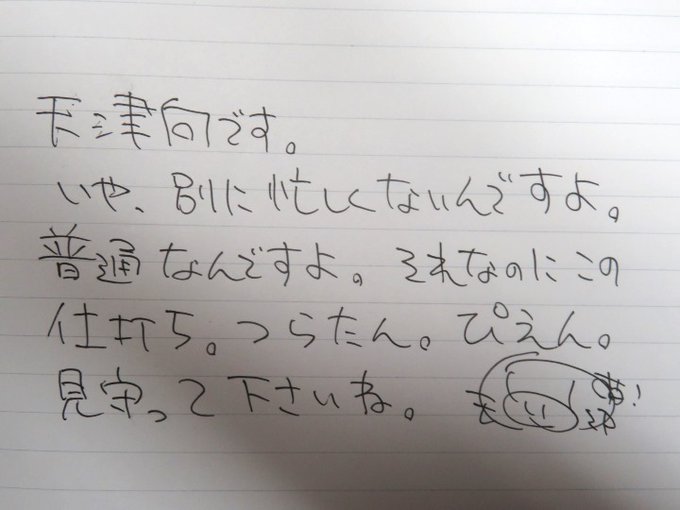 天津向です。
いや、別に忙しくないんですよ。
普通なんですよ。それなのにこの
仕打ち。つらたん。ぴえん。
見守って下さいね。